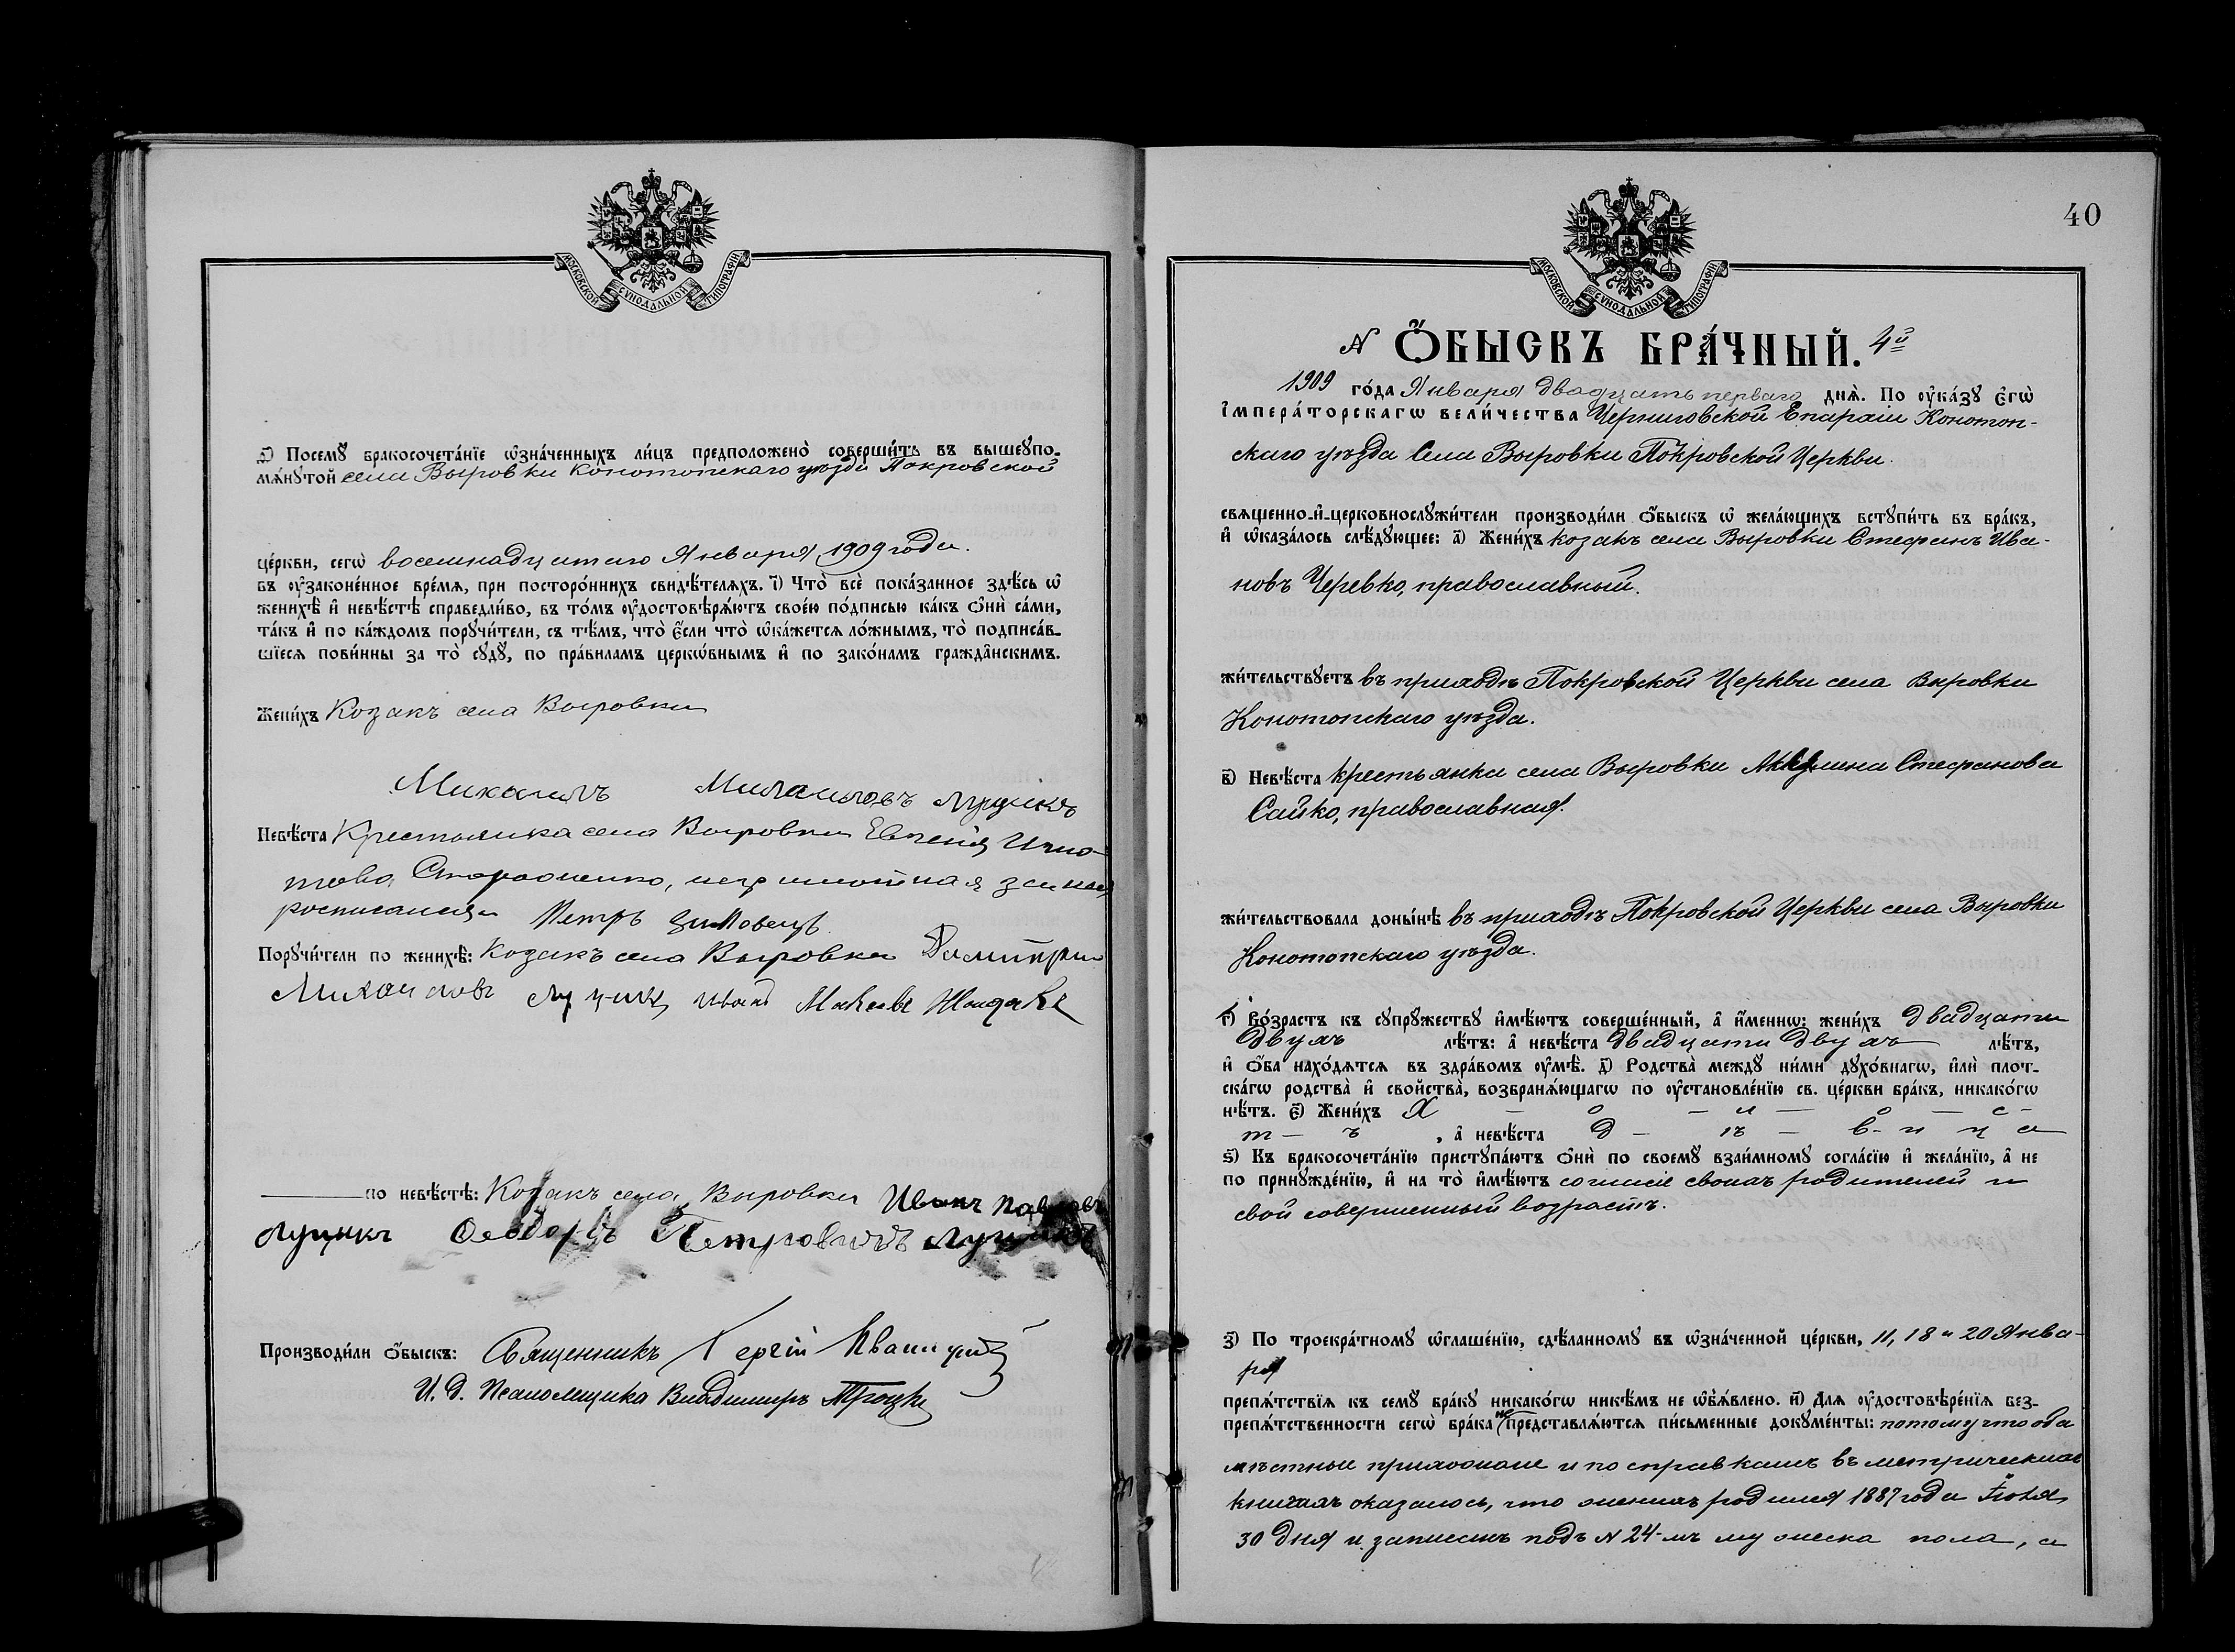 МОСКОВСКОЙ СѴНОДАЛЬНОЙ ТИПОГРАФІИ
ѳ҃) Посемꙋ̀ бракосочета́нїе ѡ҆зна́ченныхъ ли́цъ предположено̀ соверши́ть въ вышеꙋпо-
мѧ́нꙋтой села Выровки Конотопскаго уѣзда Покровской
це́ркви, сегѡ̀ восемнадцатаго Января 1909 года.
въ ᲂу҆зако́ненное вре́мѧ, при посторо́ннихъ свидѣ́телѧхъ. і҃) Что̀ всѐ пока́занное здѣ́сь ѡ҆
женихѣ̀ и҆ невѣ́стѣ справедли́во, въ то́мъ ᲂу҆достовѣрѧ́ютъ свое́ю по́дписью ка́къ ѻ҆нѝ са́ми,
та́къ и҆ по ка́ждомъ порꙋчи́тели, съ тѣ́мъ, что̀ є҆́сли что̀ ѡ҆ка́жетсѧ ло́жнымъ, то̀ подписа́в-
шїесѧ пови́нны за то̀ сꙋдꙋ̀, по пра́виламъ церкѡ́внымъ и҆ по зако́намъ гражда̑нскимъ.
Жени́хъ Козакъ села Выровки
Михаилъ Михаиловъ Луцикъ
Невѣ́ста Крестьянка села Выровки Евгенія Игна-
това неграмотная за нея
росписался Петръ Зимовецъ.
Порꙋчи́тели по женихѣ̀: Козакъ села Выровки Димитрий
Михаиловъ Луцикъ Иванъ
по невѣ́стѣ: Козакъ села Выровки Иванъ Павловъ
Луцикъ Ѳеодоръ Петровичъ Луцикъ
Производи́ли ѻ҆́быскъ: Священникъ
И. Д. Псаломщика Владимиръ Троцкій
40
МОСКОВСКОЙ СѴНОДАЛЬНОЙ ТИПОГРАФІИ
N Ѻ҆́БЫСКЪ БРА́ЧНЫЙ. 4й
1909 го́да Января двадцать перваго днѧ̀. По ᲂу҆ка́зꙋ Є҆гѡ̀
І҆мпера́торскагѡ вели́чества Черниговской Епархіи Конотоп-
скаго уѣзда Села Выровки Покровской Церкви.
свѧщенно-и҆-церковнослꙋжи́тели производи́ли ѻ҆́быскъ ѡ҆ жела́ющихъ встꙋпи́ть въ бра́къ,
и҆ ѡ҆каза́лось слѣ́дꙋющее: а҃) Жени́хъ козакъ села Выровки Стефанъ Ива-
новъ Черевко, православный.
жи́тельствꙋетъ въ приходѣ Покровской Церкви села Выровки
Конотопскаго уѣзда.
в҃) Невѣ́ста крестьянка села Выровки Акулина Стефанова
Сайко, православная.
жи́тельствовала доны́нѣ въ приходѣ Покровской Церкви села Выровки
Конотопскаго уѣзда.
г҃) Во́зрастъ къ сꙋпрꙋ́жествꙋ и҆мѣ́ютъ соверше́нный, а҆ и҆́меннѡ: жени́хъ двадцати
двухъ лѣ́тъ: а҆ невѣ́ста двадцати двухъ лѣ́тъ,
и҆ ѻ҆́ба нахо́дѧтсѧ въ здра́вомъ ᲂу҆мѣ̀. д҃) Родства̀ междꙋ̀ ни́ми дꙋхо́внагѡ, и҆лѝ плот-
ска́гѡ родства̀ и҆ свойства̀, возбранѧ́ющагѡ по ᲂу҆становле́нїю св. це́ркви бра́къ, никако́гѡ
нѣ́тъ. є҃) Жени́хъ х - о - л - о - с -
т - ъ , а҆ невѣ́ста д - ѣ - в - и ц а
ѕ҃) Къ бракосочета́нїю пристꙋпа́ютъ ѻ҆нѝ по своемꙋ̀ взаи́мномꙋ согла́сїю и҆ жела́нїю, а҆ не
по принꙋжде́нїю, и҆ на то̀ и҆мѣ́ютъ согласіе своихъ родителей и
свой совершенный возрастъ.
з҃) По троекра́тномꙋ ѡ҆глаше́нїю, сдѣ́ланномꙋ въ ѡ҆зна́ченной це́ркви, 11, 18 и 20 Янва-
ря
препѧ́тствїѧ къ семꙋ̀ бра́кꙋ никако́гѡ никѣ́мъ не ѡ҆б̾ѧ́влено. и҃) Длѧ ᲂу҆достовѣре́нїѧ без-
препѧ́тственности сегѡ̀ бра́ка не представлѧ́ютсѧ пи́сьменные докꙋме́нты: потому что оба
мѣстные прихожане и по справкамъ въ метрическихъ
книгахъ оказалось, что женихъ родился 1887 года Іюля
30 дня и записанъ подъ N 24-мъ мужеска пола, а